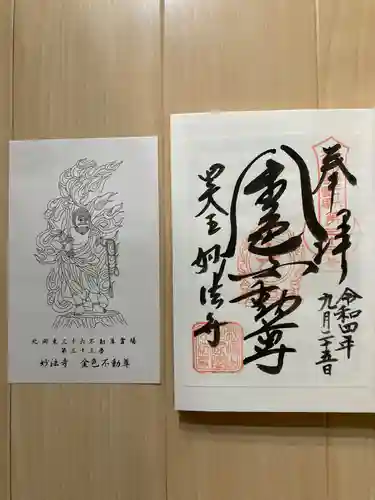 奉拝
令和四年
九月二十五日
金色不動尊
妙法寺
北関東三十六不動尊霊場
第三十三番
妙法寺 金色不動尊